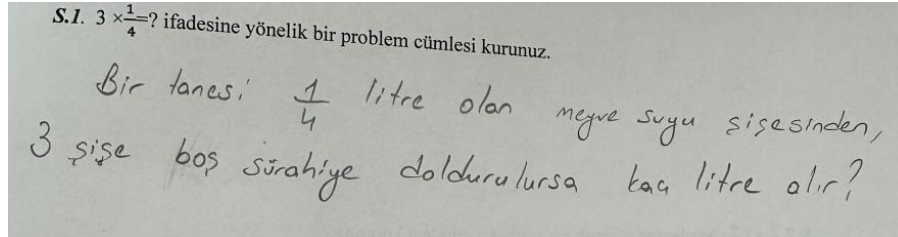 S.1. 3 ×1/4=? ifadesine yönelik bir problem cümlesi kurunuz.
Bir tanesi 1/4 litre olan meyve suyu şişesinden,
3 şişe boş sürahiye doldurulursa kaç litre alır?